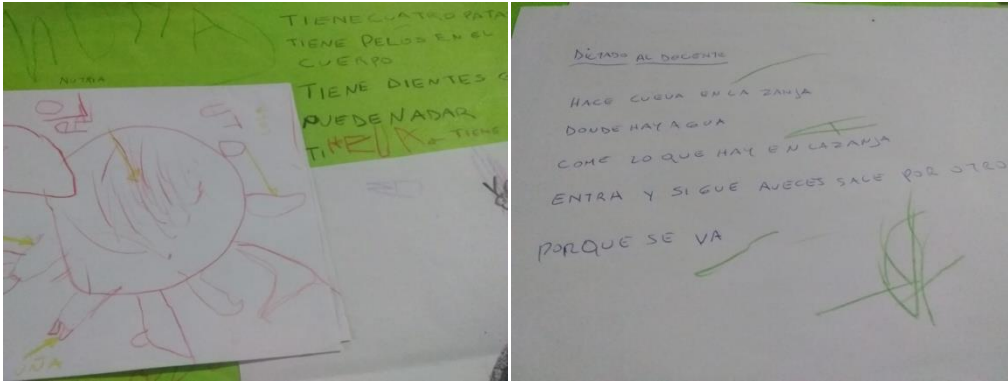 NUTRIA
TIENE CUATRO PATA
TIENE PELOS EN EL
CUERPO
TIENE DIENTES
PUEDE NADAR
TIENE
UÑA
DICTADO AL DOCENTE
HACE CUEVA EN LA ZANJA
DONDE HAY AGUA
COME LO QUE HAY EN LA ZANJA
ENTRA Y SIGUE AVECES SALE POR OTRO
PORQUE SE VA